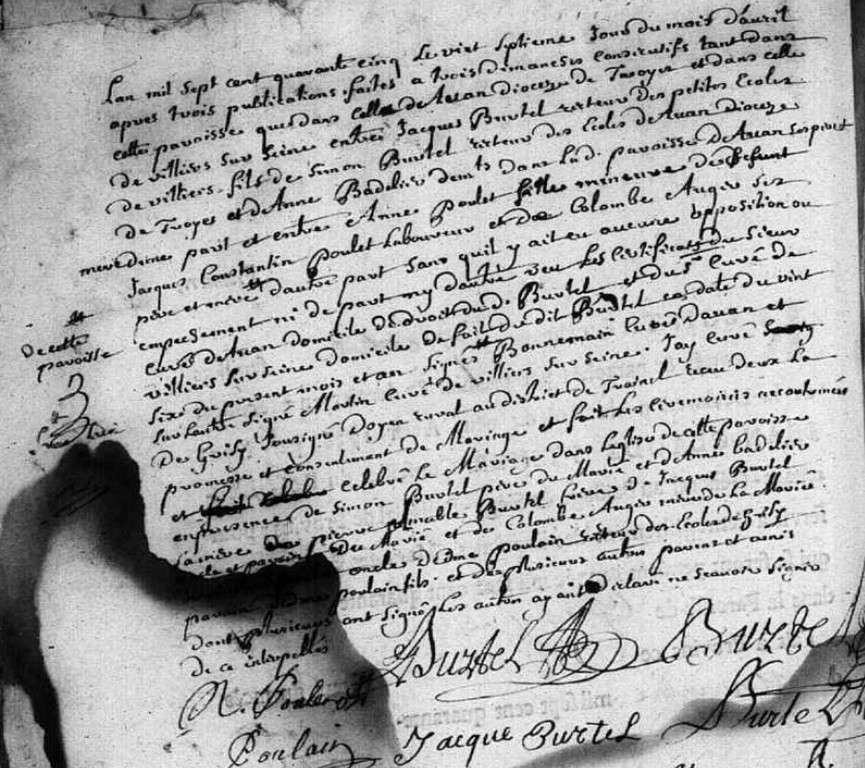 Lan mil sept cent quarante cinq Le vint septieme Jour du mois d'avril
apres trois publications faites a trois dimanches consecutifs tant dans
cette paroisse que dans celle de Avan dioceze de Troyes et dans celle
de villiers sur Seine entre Jacques Burtel recteur des petites Ecoles
de villiers fils de Simon Burtel recteur des Ecoles de Avan Dioceze
de Troyes et d'Anne Badelier demts dans lad. paroisse de Avan ses pere et
mere d'une part et entre Anne Poulet fille mineure de deffunt
Jacques Constantin Poulet Laboureur et de Colombe Auger ses
pere et mere d'autre part sans quil y ait eu aucune opposition ou
empechement ni de part ny d'autre veu Les Certificats du Sieur
Curé de Avan domicile de droit dud. Burtel et du Sr Curé de
villiers sur Seine domicile de fait du dit Burtel en date du vint
six du present mois et an signés Bonnemain Curé d'avan et
sur Lautre signé Moulin Curé de villiers sur Seine. Jay Curé
De Grisy Soussigné Doyen rural au district de Trainel receu deux La
promesse et consentement de Mariage et fait Les ceremonies accoutumées
et celebré Le Mariage dans Leglise de cette paroisse
en presence de Simon Burtel pere du Marié et d'Anne badelier
sa mere de pierre aimable Burtel frere de Jacques Burtel
oncle et parain Du Marié, et de Colombe Auger mere de La Mariée
oncle d'Edme Poulain recteur des Ecoles de Grisy
parain Edme poulain fils, et de plusieurs autres parens et amis
dont plusieurs ont signé Les autres ayant declaré ne scavoir signer
de ce interpellés
de cette
paroisse
Burtel Burtel
Poulain Jacque Burtel Burtel